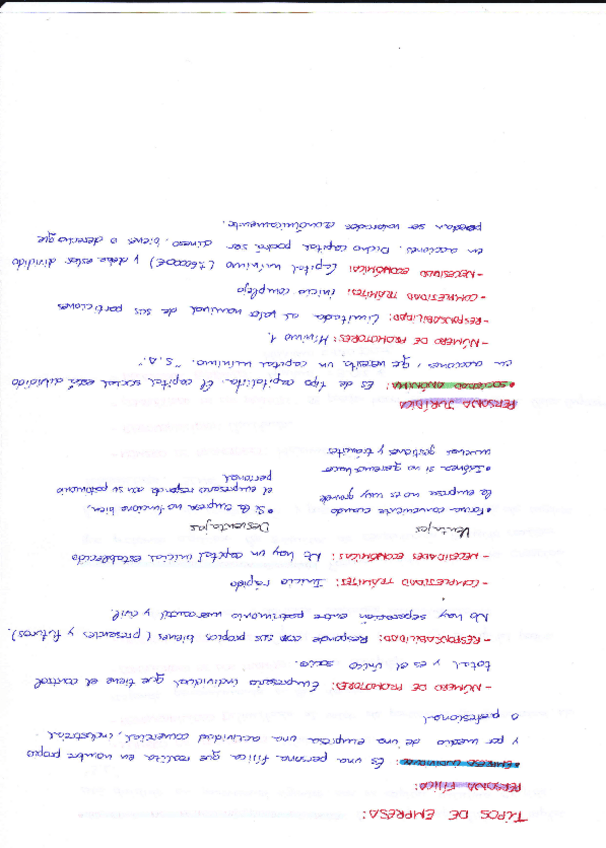 TIPOS DE EMPRESA:
PERSONA FÍSICA:
• EMPRESA INDIVIDUAL: Es una persona física que realiza en nombre propio
y por medio de una empresa una actividad comercial, industrial
o profesional
- NÚMERO DE PROMOTORES: Empresario individual que tiene el control
total y es el único socio.
- RESPONSABILIDAD: Responde con sus propios bienes (presentes y futuros).
No hay separación entre patrimonio mercantil y civil.
- COMPLEJIDAD TRÁMITES: Inicio rápido
- NECESIDADES ECONÓMICAS: No hay un capital inicial establecido
Ventajas Desventajas
• Forma conveniente cuando • Si la empresa no funciona bien,
la empresa no es muy grande el empresario responde con su patrimonio
personal
• Idónea si no queremos hacer
muchas gestiones y trámites
PERSONA JURÍDICA
• SOCIEDAD ANÓNIMA: Es de tipo capitalista. El capital social está dividido
en acciones, que necesita un capital mínimo. "S.A".
- NÚMERO DE PROMOTORES: Mínimo 1.
- RESPONSABILIDAD: Limitada al valor nominal de sus participaciones
- COMPLEJIDAD TRÁMITES: inicio complejo
- NECESIDAD ECONÓMICA: Capital mínimo (≥60000€) y debe estar dividido
en acciones. Dicho capital podrá ser dinero, bienes o derechos que
puedan ser valorados económicamente.